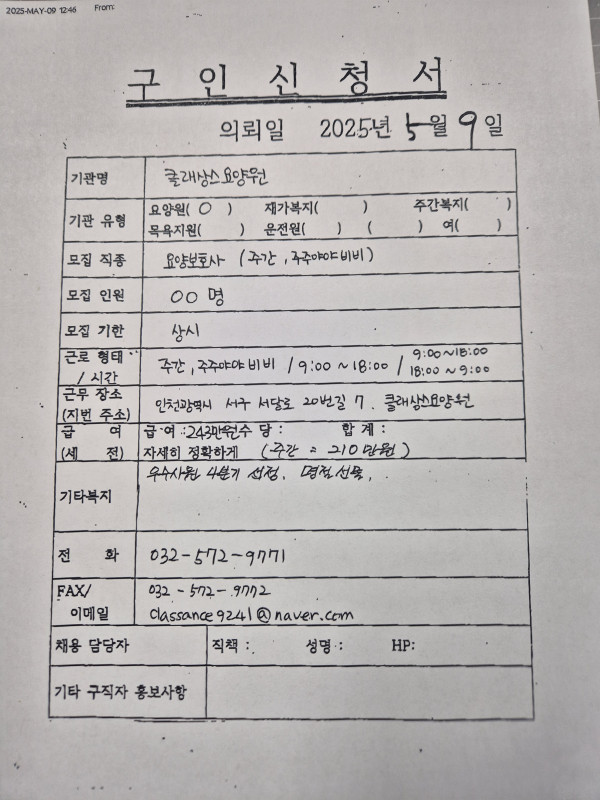 2025-MAY-09 12:46 From:
구 인 신 청 서
의뢰일 2025년 5월 9일
기관명 클래상스요양원
기관 유형 요양원( O ) 재가복지( ) 주간복지( )
목욕지원( ) 운전원( ) ( ) 여( )
모집 직종 요양보호사 (주간, 주주야야비비)
모집 인원 00 명
모집 기한 상시
근로 형태 / 시간 주간, 주주야야비비 / 9:00 ~ 18:00 / 9:00~18:00
18:00 ~ 9:00
근무 장소
(지번 주소) 인천광역시 서구 서달로 20번길 7. 클래상스요양원
급 여 급 여 : 243만원 수 당 : 합 계 :
(세 전) 자세히 정확하게 (주간 = 210만원)
기타복지 우수사원 4분기 선정, 명절선물,
전 화 032-572-9771
FAX/ 032-572-9772
이메일 classance9241@naver.com
채용 담당자 직책 : 성명 : HP:
기타 구직자 홍보사항